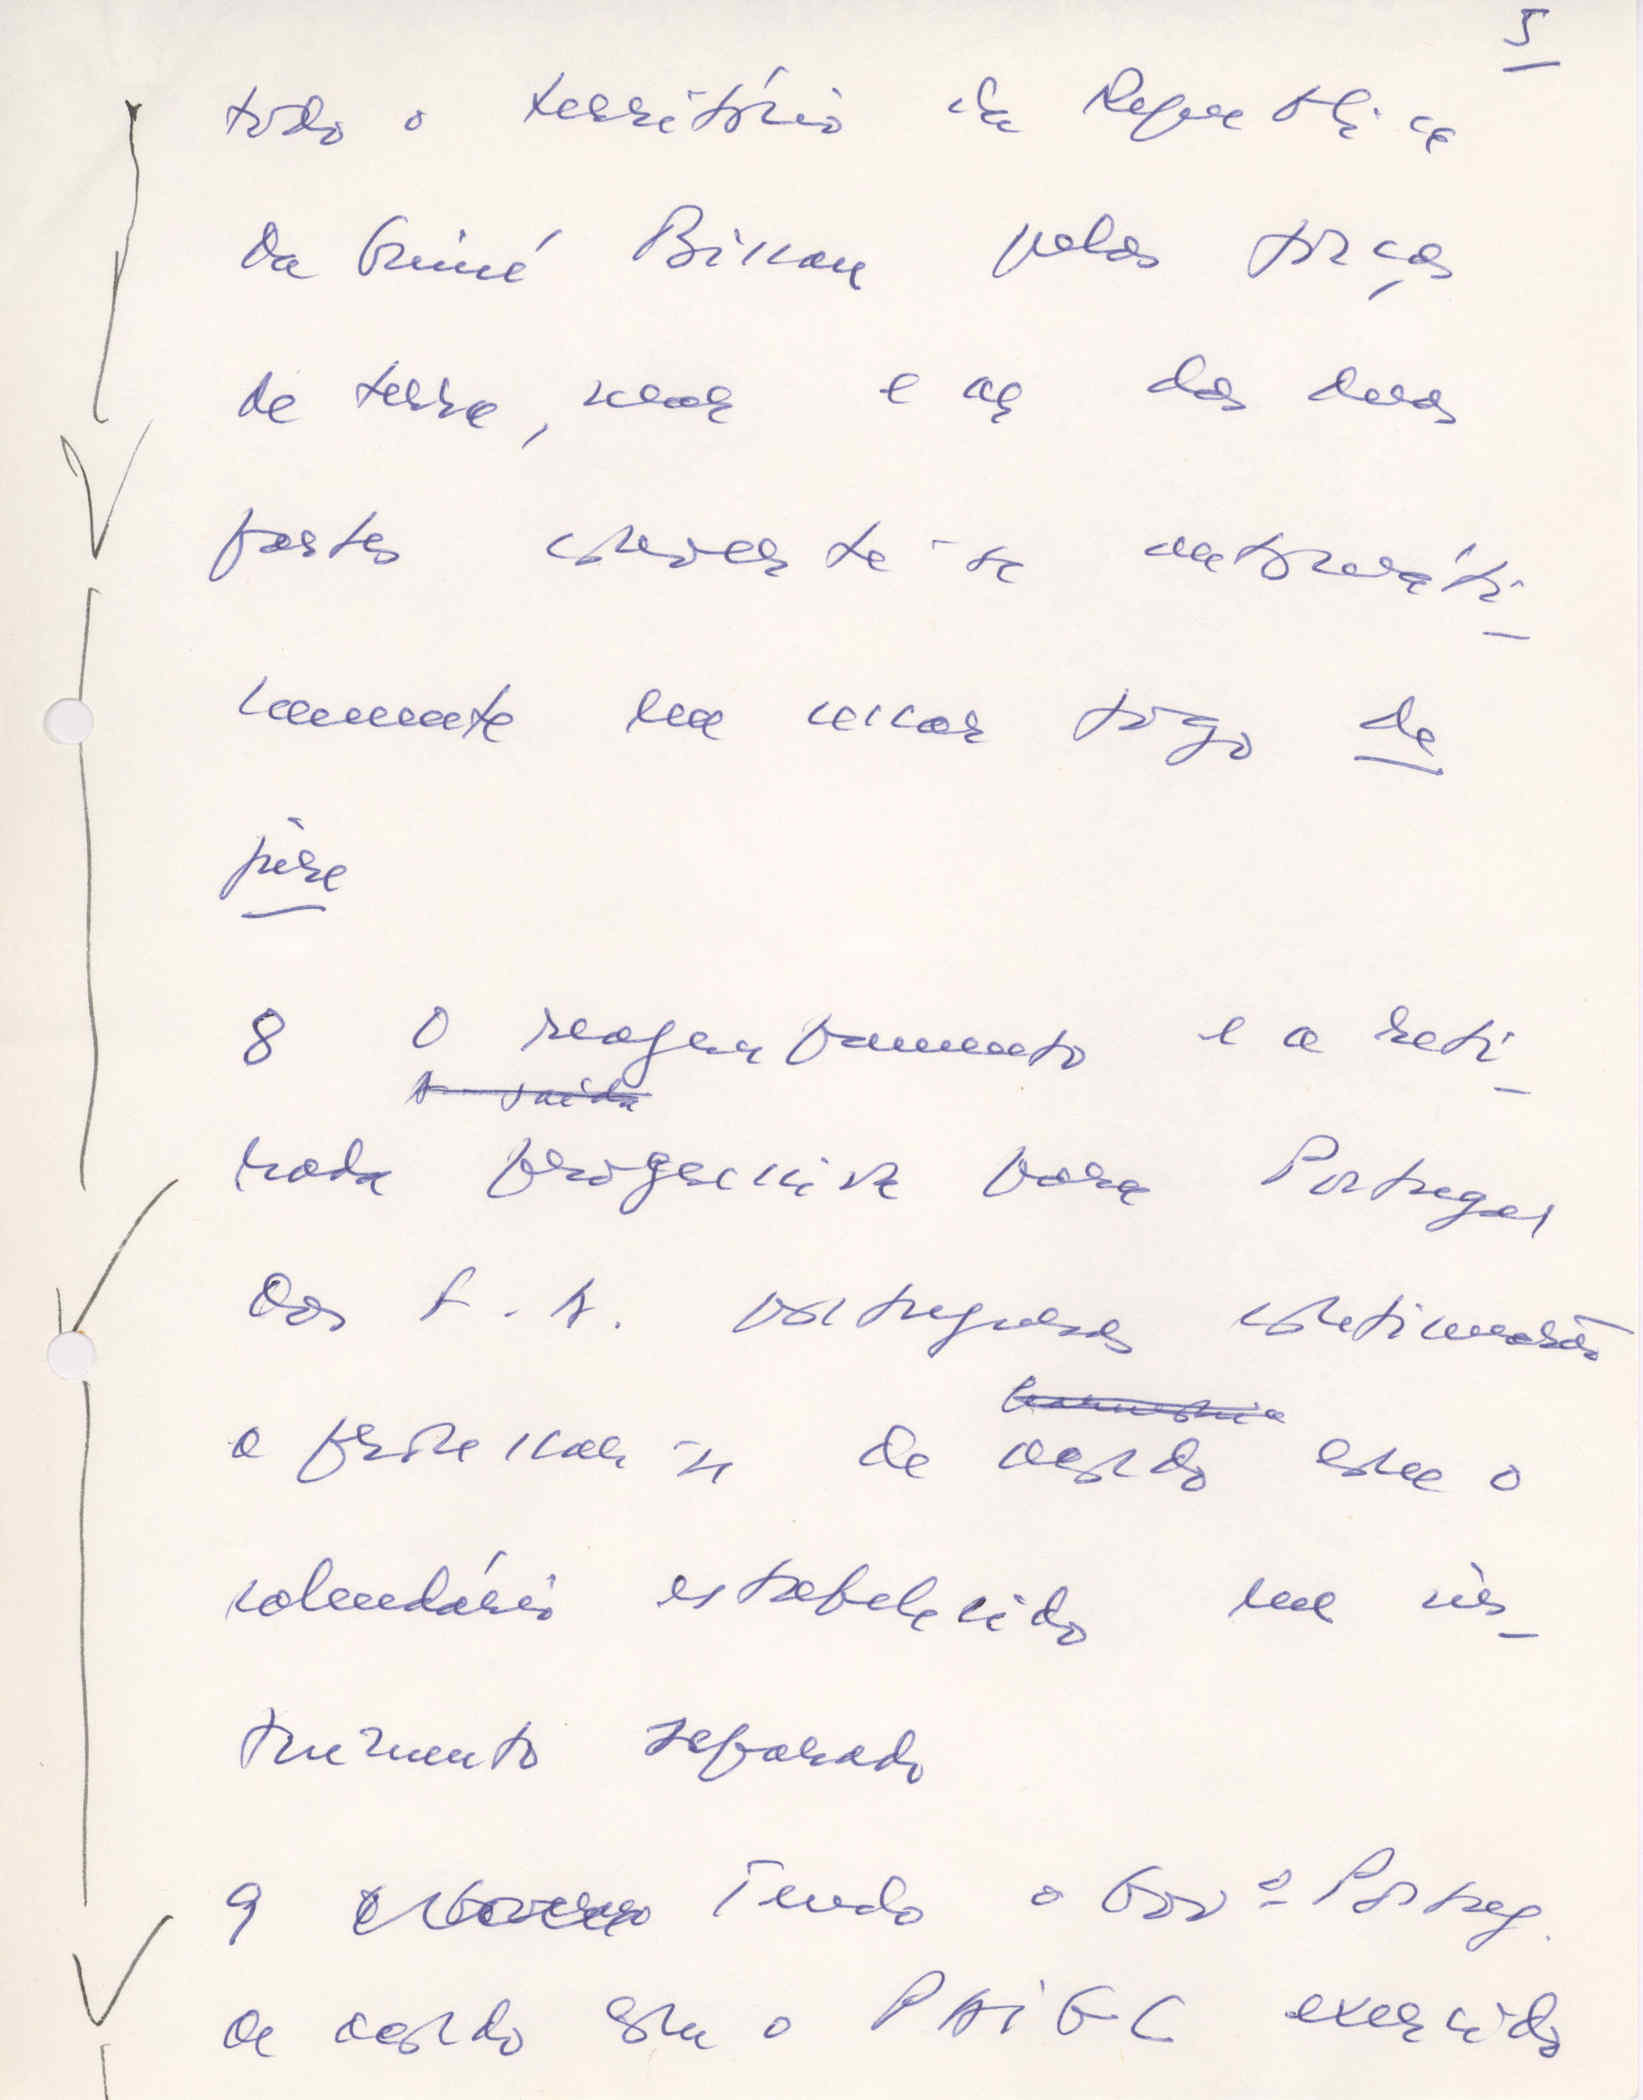 5
todo o território da República
da Guiné Bissau pelas forças
de terra, mar e ar das duas
partes converte-se automáti-
camente em cessar fogo de
jure
8 O reagrupamento e a reti-
A saída
rada progressiva para Portugal
das F.A. portuguesas continuarão
a processar-se de acordo com o
calendário estabelecido em ins-
trumento separado
9 O Governo Tendo o Govº Portug.
de acordo com o PAIGC exercido